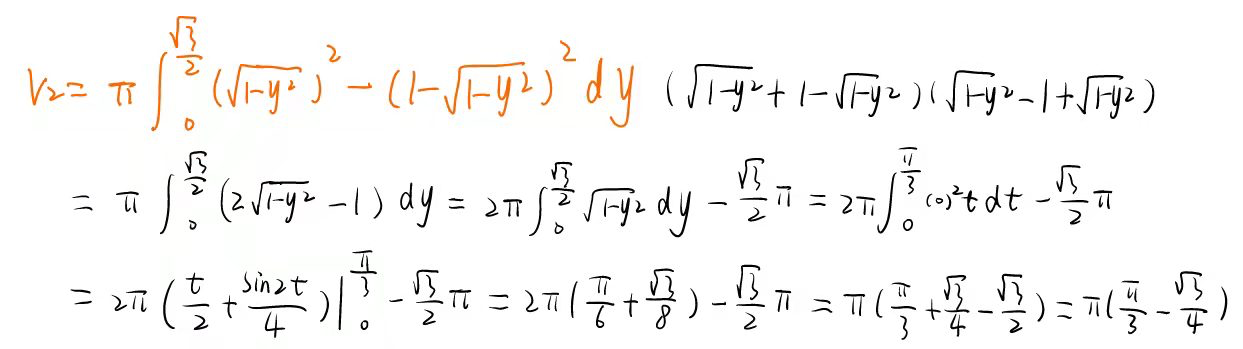 V₂ = π∫₀^{√3/2} (√(1-y²))² - (1-√(1-y²))² dy (√(1-y²) + 1 - √(1-y²))(√(1-y²) - 1 + √(1-y²))
= π∫₀^{√3/2} (2√(1-y²) - 1) dy = 2π∫₀^{√3/2} √(1-y²) dy - √3/2 π = 2π∫₀^{π/3} cos²t dt - √3/2 π
= 2π(t/2 + sin2t/4)|₀^{π/3} - √3/2 π = 2π(π/6 + √3/8) - √3/2 π = π(π/3 + √3/4 - √3/2) = π(π/3 - √3/4)